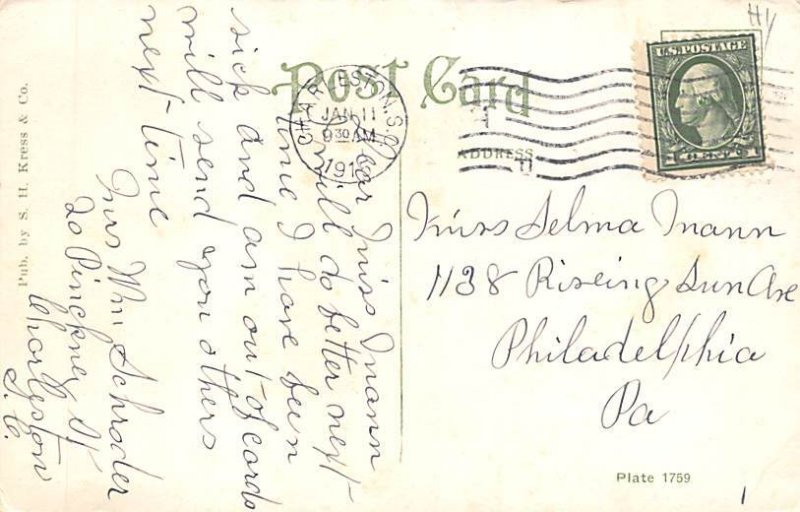 Post Card
ADDRESS
CHARLESTON, S.C.
JAN 11
9 30 AM
191
U.S. POSTAGE
1 CENT 1
Dear Miss Mann
I will do better next
time I have been
sick and am out of cards
will send you others
next time
Mrs Wm Schroder
20 Pinckney St
Charleston
S. C.
Miss Selma Mann
1138 Riseing Sun Ave
Philadelphia
Pa
Pub. by S. H. Kress & Co.
Plate 1759
1